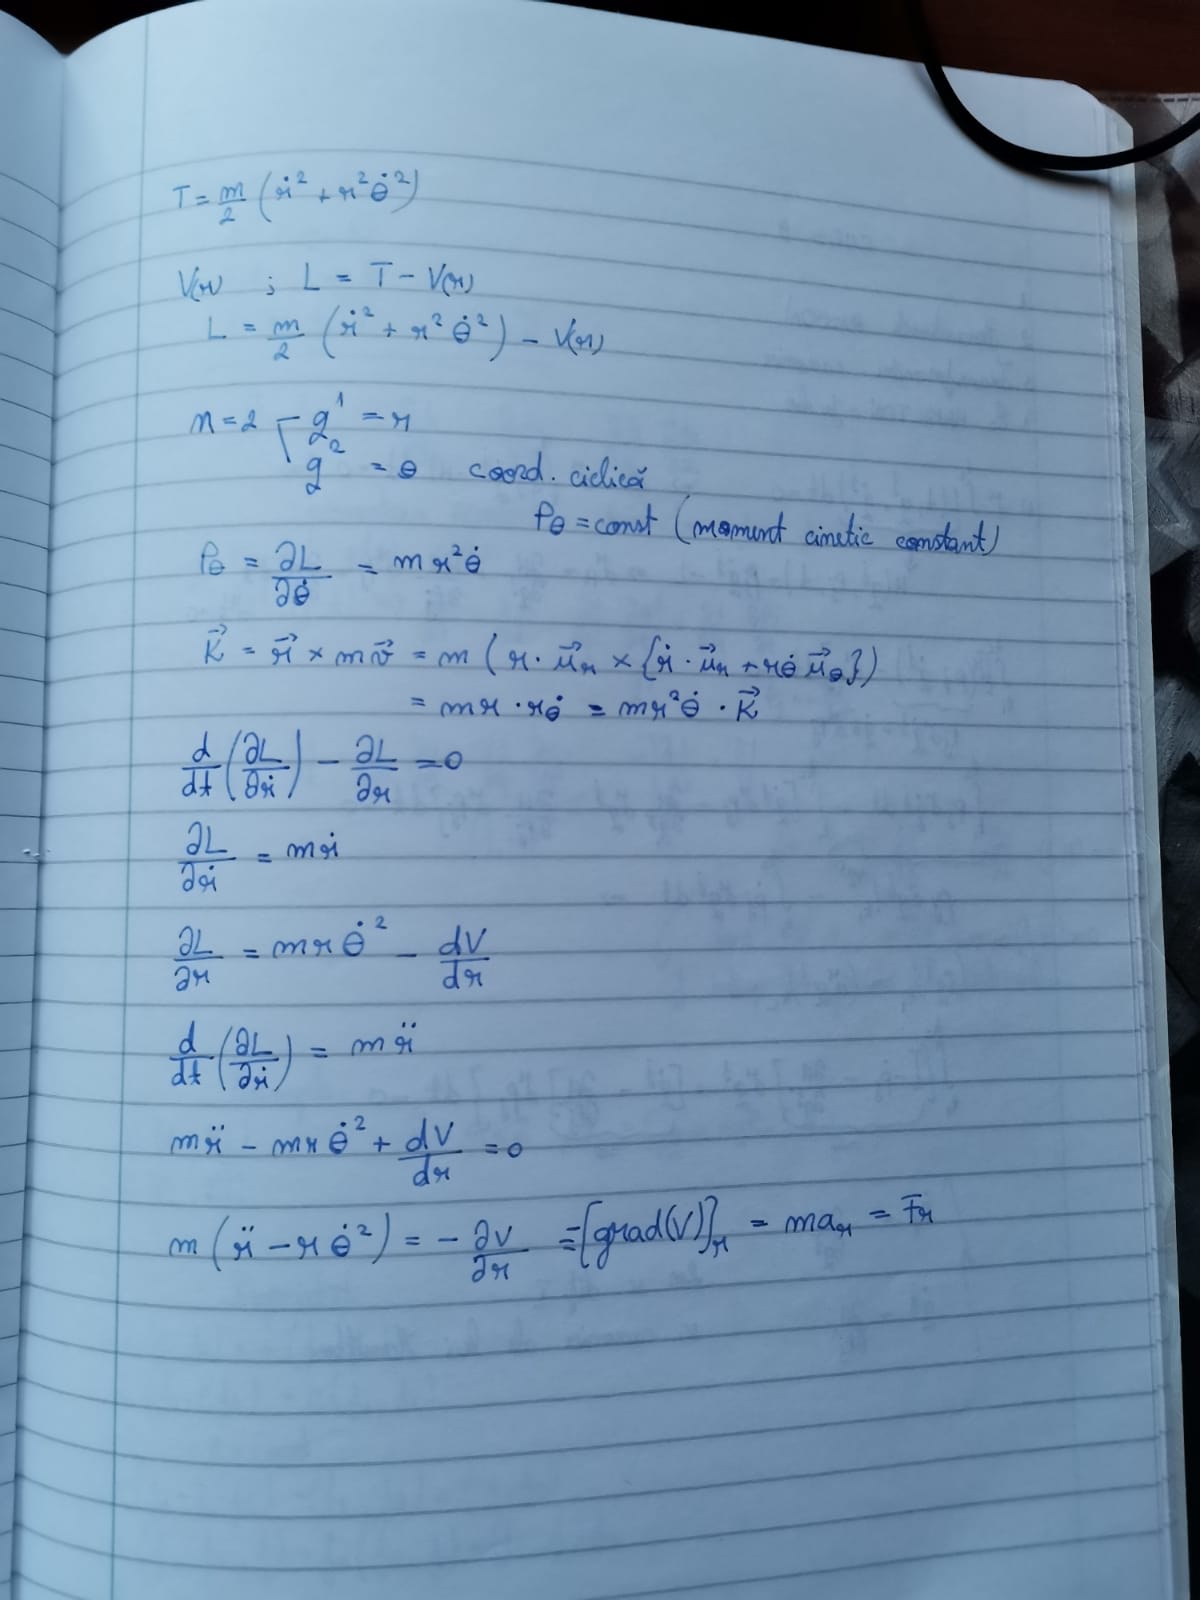 T = m/2 (ṙ² + r²θ̇²)
V(r) ; L = T − V(r)
L = m/2 (ṙ² + r²θ̇²) − V(r)
n = 2 q¹ = r
q² = θ coord. ciclică
Pθ = const (moment cinetic constant)
Pθ = ∂L/∂θ̇ = mr²θ̇
K⃗ = r⃗ × mv⃗ = m(r·u⃗r × {ṙ·u⃗r + rθ̇u⃗θ})
= mr·rθ̇ = mr²θ̇·K⃗
d/dt (∂L/∂ṙ) − ∂L/∂r = 0
∂L/∂ṙ = mṙ
∂L/∂r = mrθ̇² − dV/dr
d/dt (∂L/∂ṙ) = mr̈
mr̈ − mrθ̇² + dV/dr = 0
m(r̈ − rθ̇²) = − ∂V/∂r = −[grad(V)]r = mar = Fr